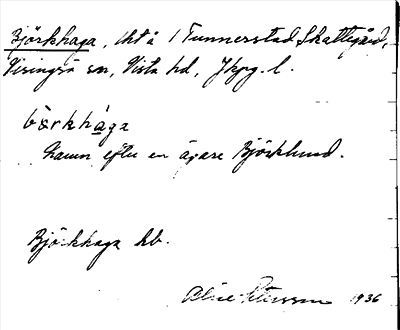 Björkhaga, lht å 1 Tunnerstad Skattegård,
Visingsö sn, Vista hd, Jkpg. l.
bö̀rkhàga
Namn efter en ägare Björklund.
Björkhaga hb.
Petersson 1936